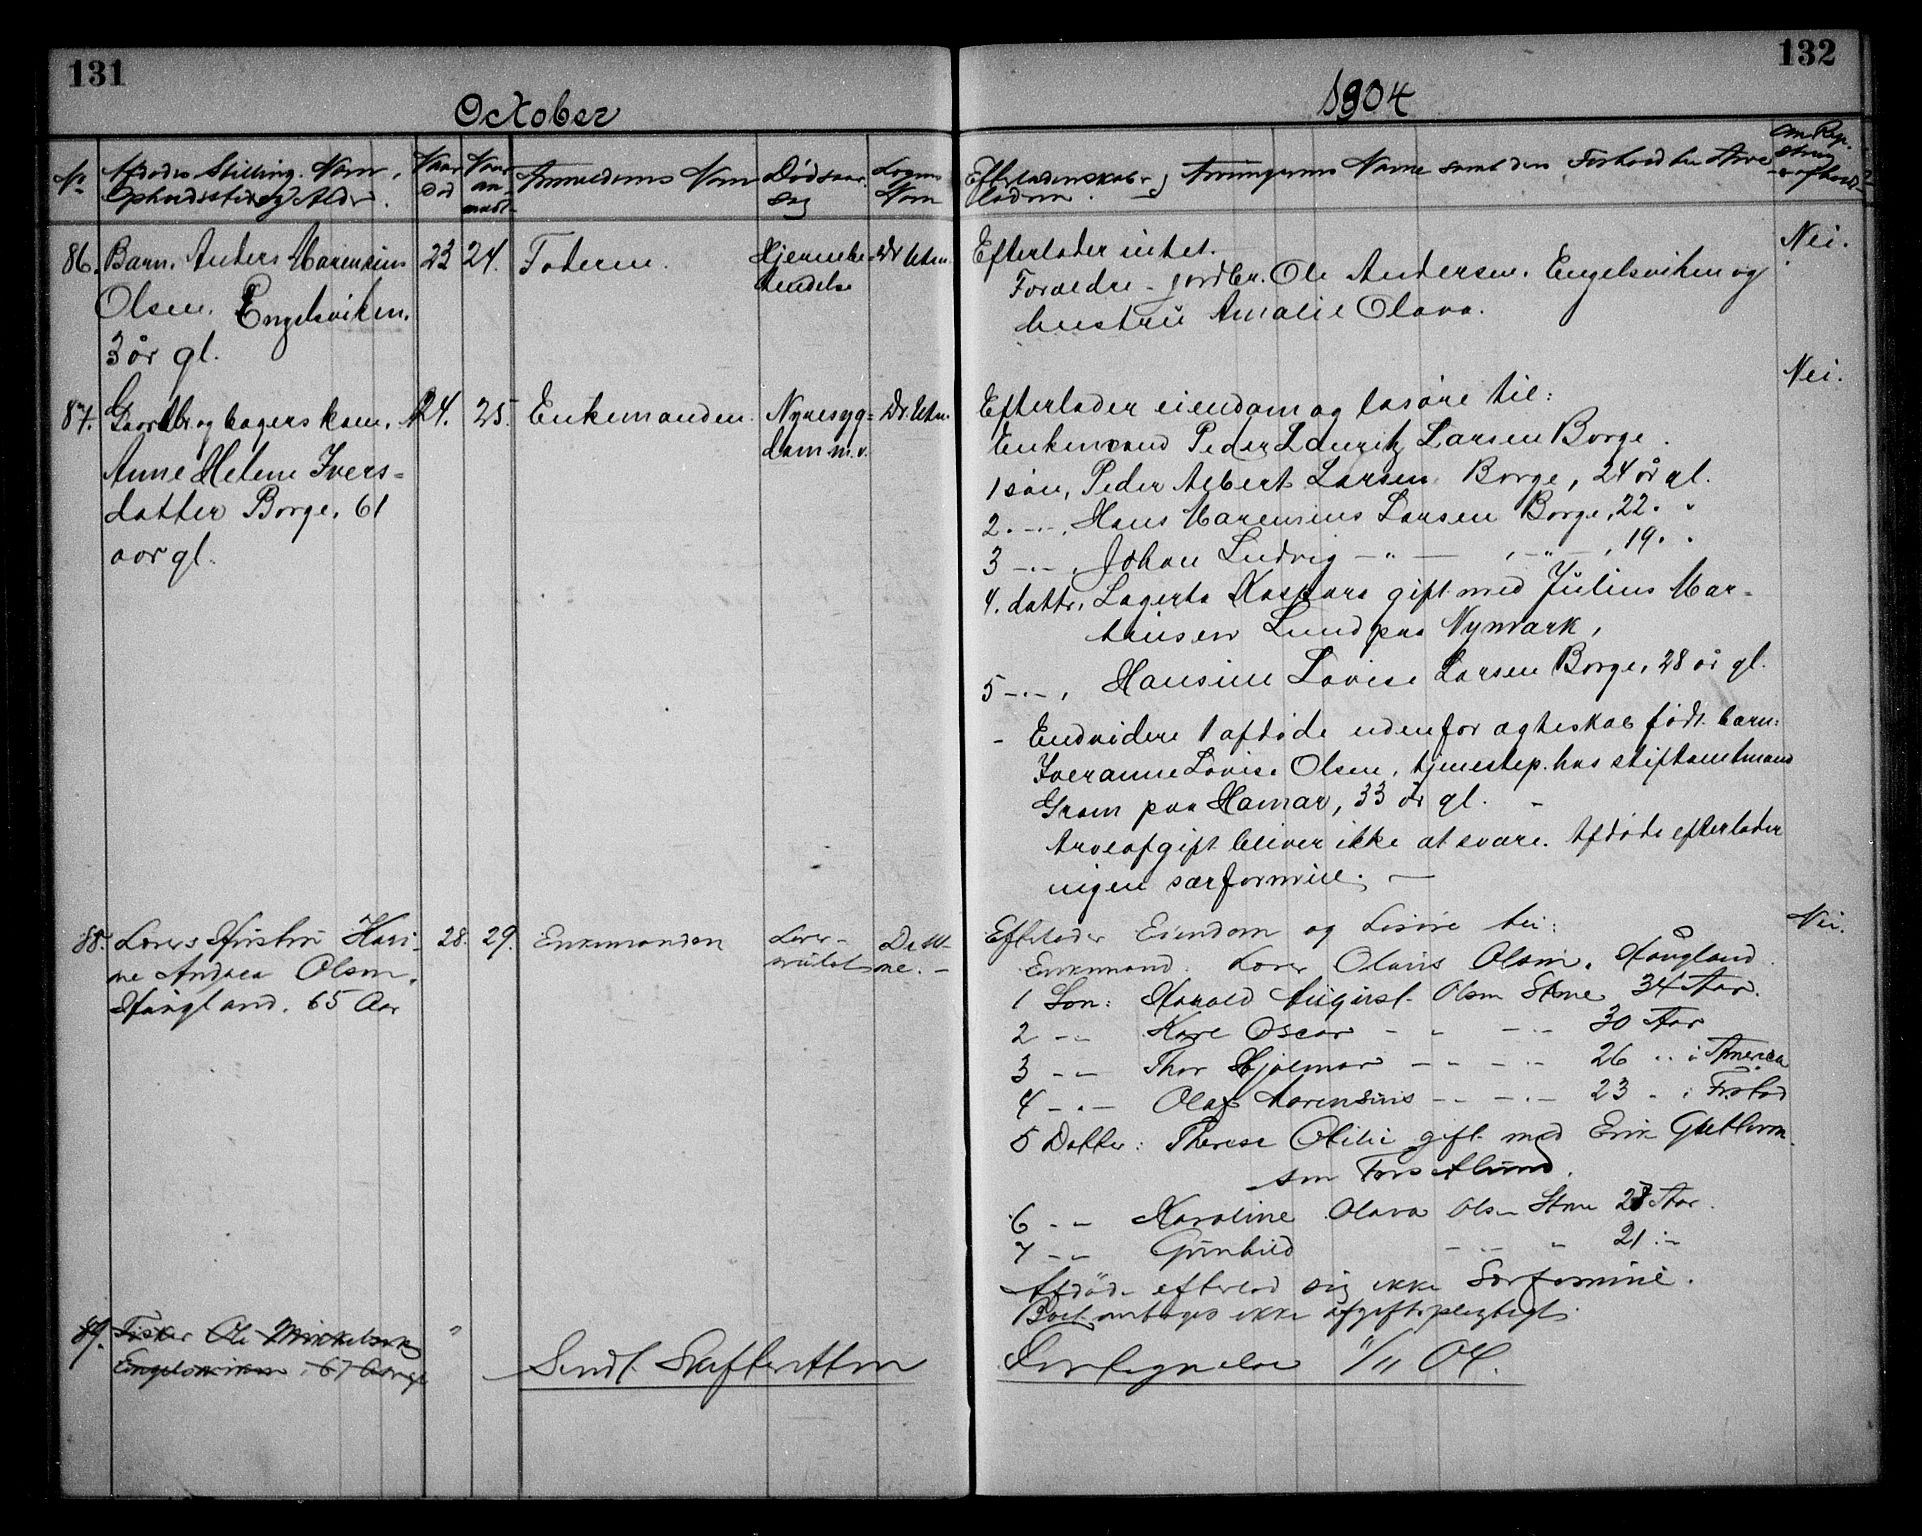 131
October
No
Afdødes Stilling. Navn,
Opholdssted og Alder.
Naar
Død
Naar
an-
meldt
Anmelderens Navn
Dødsaar-
sag
Lægens
Navn
86. Barn. Anders Marensius
Olsen. Engelsviken.
3 år gl.
23 24. Faderen. Hjernebe-
tændelse
Dr Utne.
87. Gaardbr. og bagers kone,
Anne Helene Ivers=
datter Borge. 61
aar gl.
24. 25. Enkemanden. Nyresyg=
dom m.v.
Dr. Utne.
88. Lovers Hustru Hari-
ne Andrea Olsen.
Haugland. 65 Aar
28. 29. Enkemanden
89. Fisker Ole Mikkelsen
Engelsviken, 67 Aar gl
Sendt Skifteretten
132
1904
Arvingernes Navne samt den Forhold
Efterlader intet. Nei.
Forældre - jordbr. Ole Andersen. Engelsviken og
hustru Amalie Olava.
Efterlader eiendom og løsøre til: Nei.
Enkemand Peder Lauritz Larsen Borge.
1 søn, Peder Albert Larsen Borge, 24 år gl.
2. -"-, Hans Marensius Larsen Borge, 22. "
3 -"-, Johan Ludvig -"- , -"-, 19. "
4. datter, Lagerta Kaspara gift med Julius Mar-
tinsen Lund paa Nymark,
5 -"-, Hansine Lovise Larsen Borge, 28 år gl.
- Endvidere 1 afdøde udenfor ægteskab født barn:
Iveranne Lovise Olsen, tjenestep. hos stiftamtmand
Gram paa Hamar, 33 år gl. -
Arveafgift bliver ikke at svare. Afdøde efterlader
ingen særformue. -
Efterlader Eiendom og Løsøre til: Nei.
Enkemand. Olaus Olsen. Haugland.
1 Søn: Harald August Olsen Stene 34 Aar.
2 -"- Kare Oscar - " - -"- 30 Aar
3 -"- Thor Hjalmar - " - -"- 26 " i America
4 -"- Olaf Marensius - " - -"- 23 " i Fr.stad
5 Datter: Therese Otilie gift med Erik Guttorm-
sen
6 -"- Karoline Olava Olsen Stene 28 Aar.
7 -"- Gunhild - " - " 21 "
Afdøde efterlod sig ikke Særformue.
Boet antages ikke afgiftspligtigt.
Fortegnelse 1/11 04.